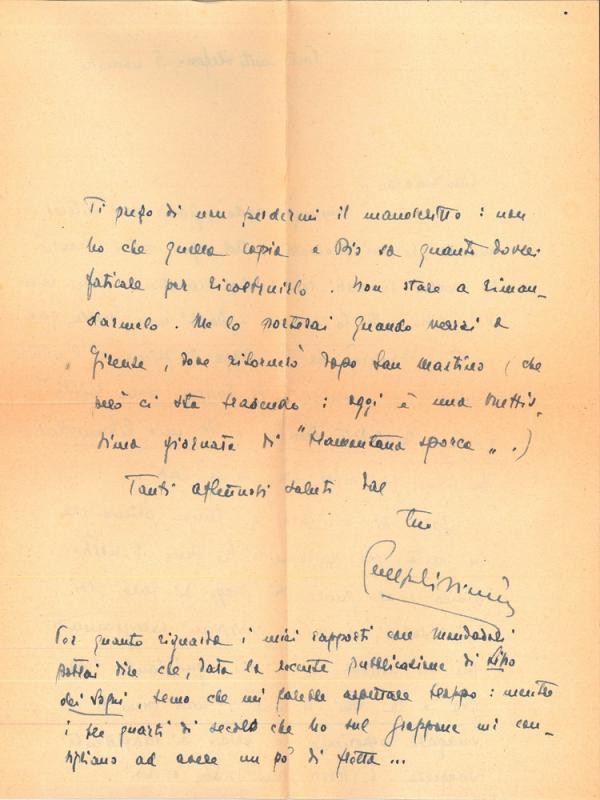 Ti prego di non perdermi il manoscritto : non
ho che quella copia e Dio sa quanto dovrei
faticare per ricostruirlo . Non stare a riman-
darmelo . Me lo porterai quando verrai a
Firenze , dove ritornerò dopo San Martino ( che
però ci sta tradendo : oggi è una bruttis-
sima giornata di "tramontana sporca„ . )
Tanti affettuosi saluti dal
tuo
Per quanto riguarda i miei rapporti con Mondadori
potrai dire che , data la recente pubblicazione di Lido
dei Sogni , temo che mi farebbe aspettare troppo : mentre
i tre quarti di secolo che ho sul groppone mi con-
sigliano ad avere un po' di fretta ...